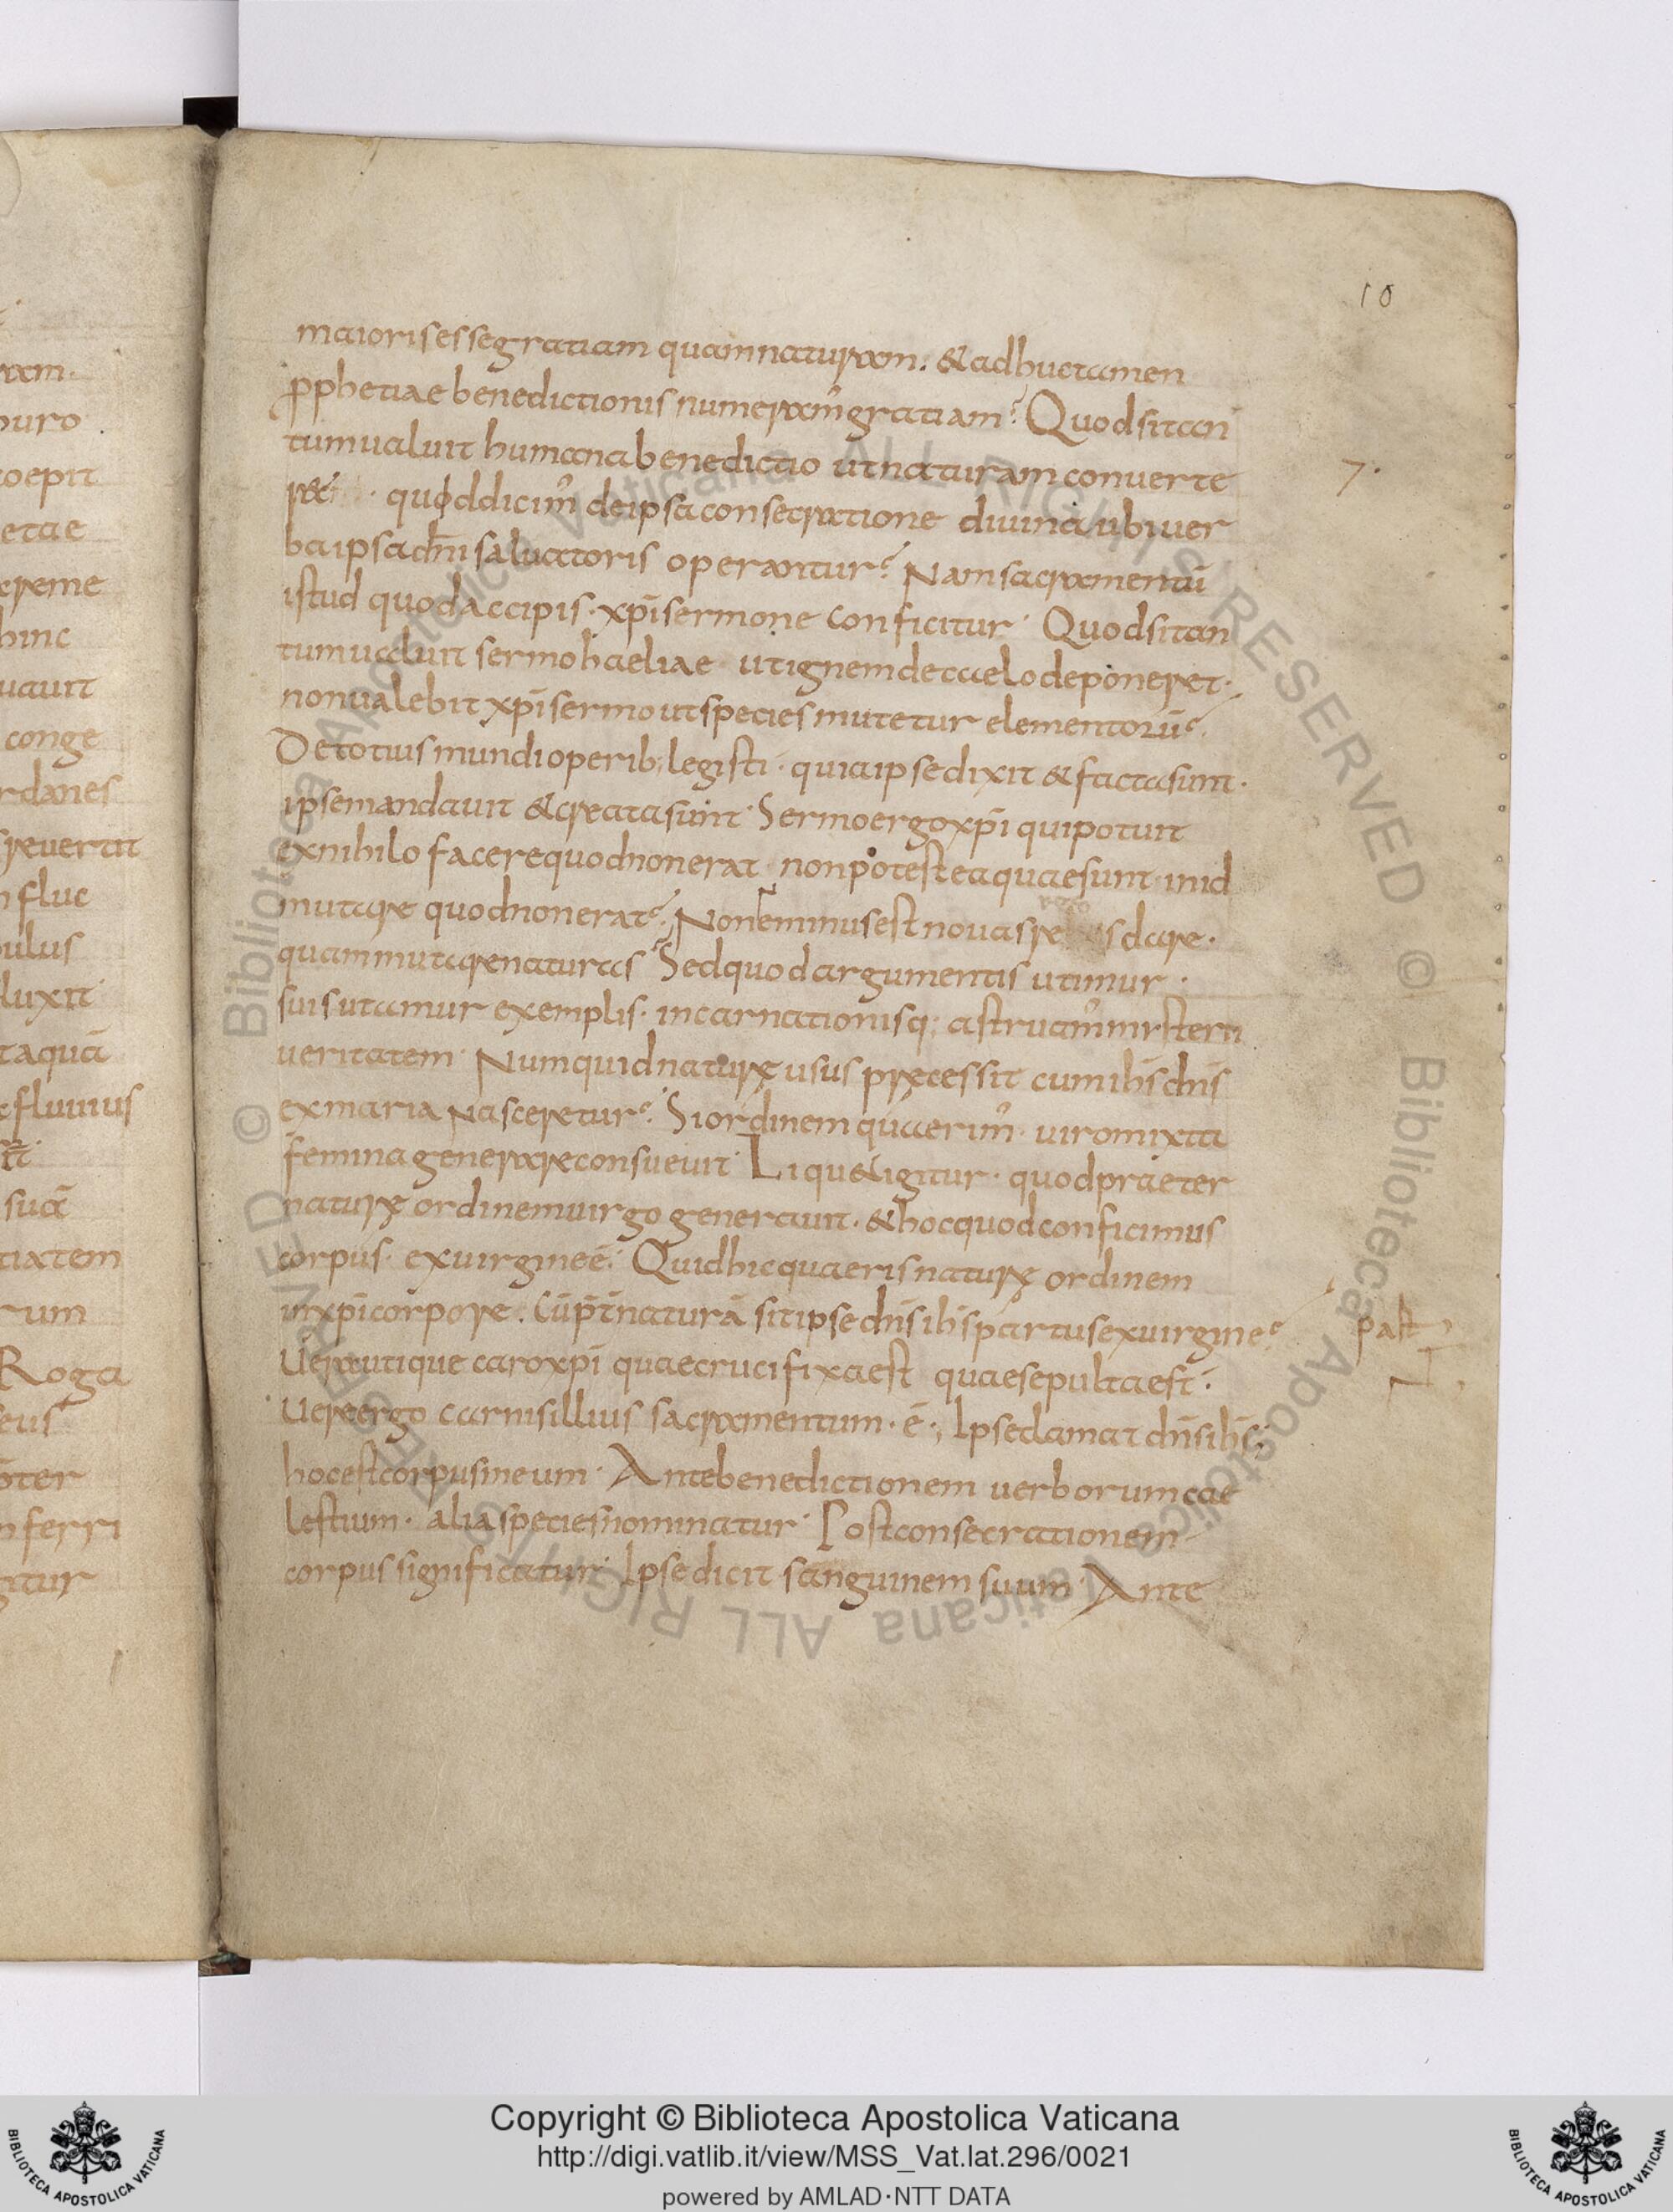 10
maioris esse gratiam quam naturam. & adhuc tamen
p̱phetiae benedictionis numeram̓ gratiam? Quod si tan
tum ualuit humana benedictio ut naturam conuerte
7.
r& · quod dicim̓ de ipsa consecratione diuina ubi uer
ba ipsa dn̄i saluatoris operantur? Nam sacramentū
istud quod accipis · xp̄i sermone conficitur · Quod si tan
tum ualuit sermo haeliae ut ignem de caelo deponeret ·
non ualebit xp̄i sermo ut species mutetur elementorū?
De totius mundi operib; legisti · quia ipse dixit & facta sunt ·
ipse mandauit & creata sunt · Sermo ergo xp̄i qui potuit
ex nihilo facere quod non erat · non potest ea quae sunt in id
mutare quod non erat? Non enim minus est nouas res dare ·
quam mutare naturas · Sed quod argumentis utimur ·
suis utamur exemplis · incarnationisq; astruam̓ mysterii
ueritatem · Numquid naturę usus pręcessit cum ih̄s dn̄s
ex maria nasceretur? Si ordinem quaerim̓ · uiro mixta
femina generare consueuit · Liqu& igitur · quod praeter
naturę ordinem uirgo generauit · & hoc quod conficimus
corpus · ex uirgine ē · Quid hic quaeris naturę ordinem
in xp̄i corpore · Cū p̄t naturā sit ipse dn̄s ih̄s partus ex uirgine?
past
Uera utique caro xp̄i quae crucifixa est quae sepulta est ·
Uere ergo carnis illius sacramentum · ē · Ipse clamat dn̄s ih̄s;
hoc est corpus meum · Ante benedictionem uerborum cae
lestium · alia species nominatur · Post consecrationem
corpus significatur · Ipse dicit sanguinem suum · Ante
Copyright © Biblioteca Apostolica Vaticana
http://digi.vatlib.it/view/MSS_Vat.lat.296/0021
powered by AMLAD·NTT DATA